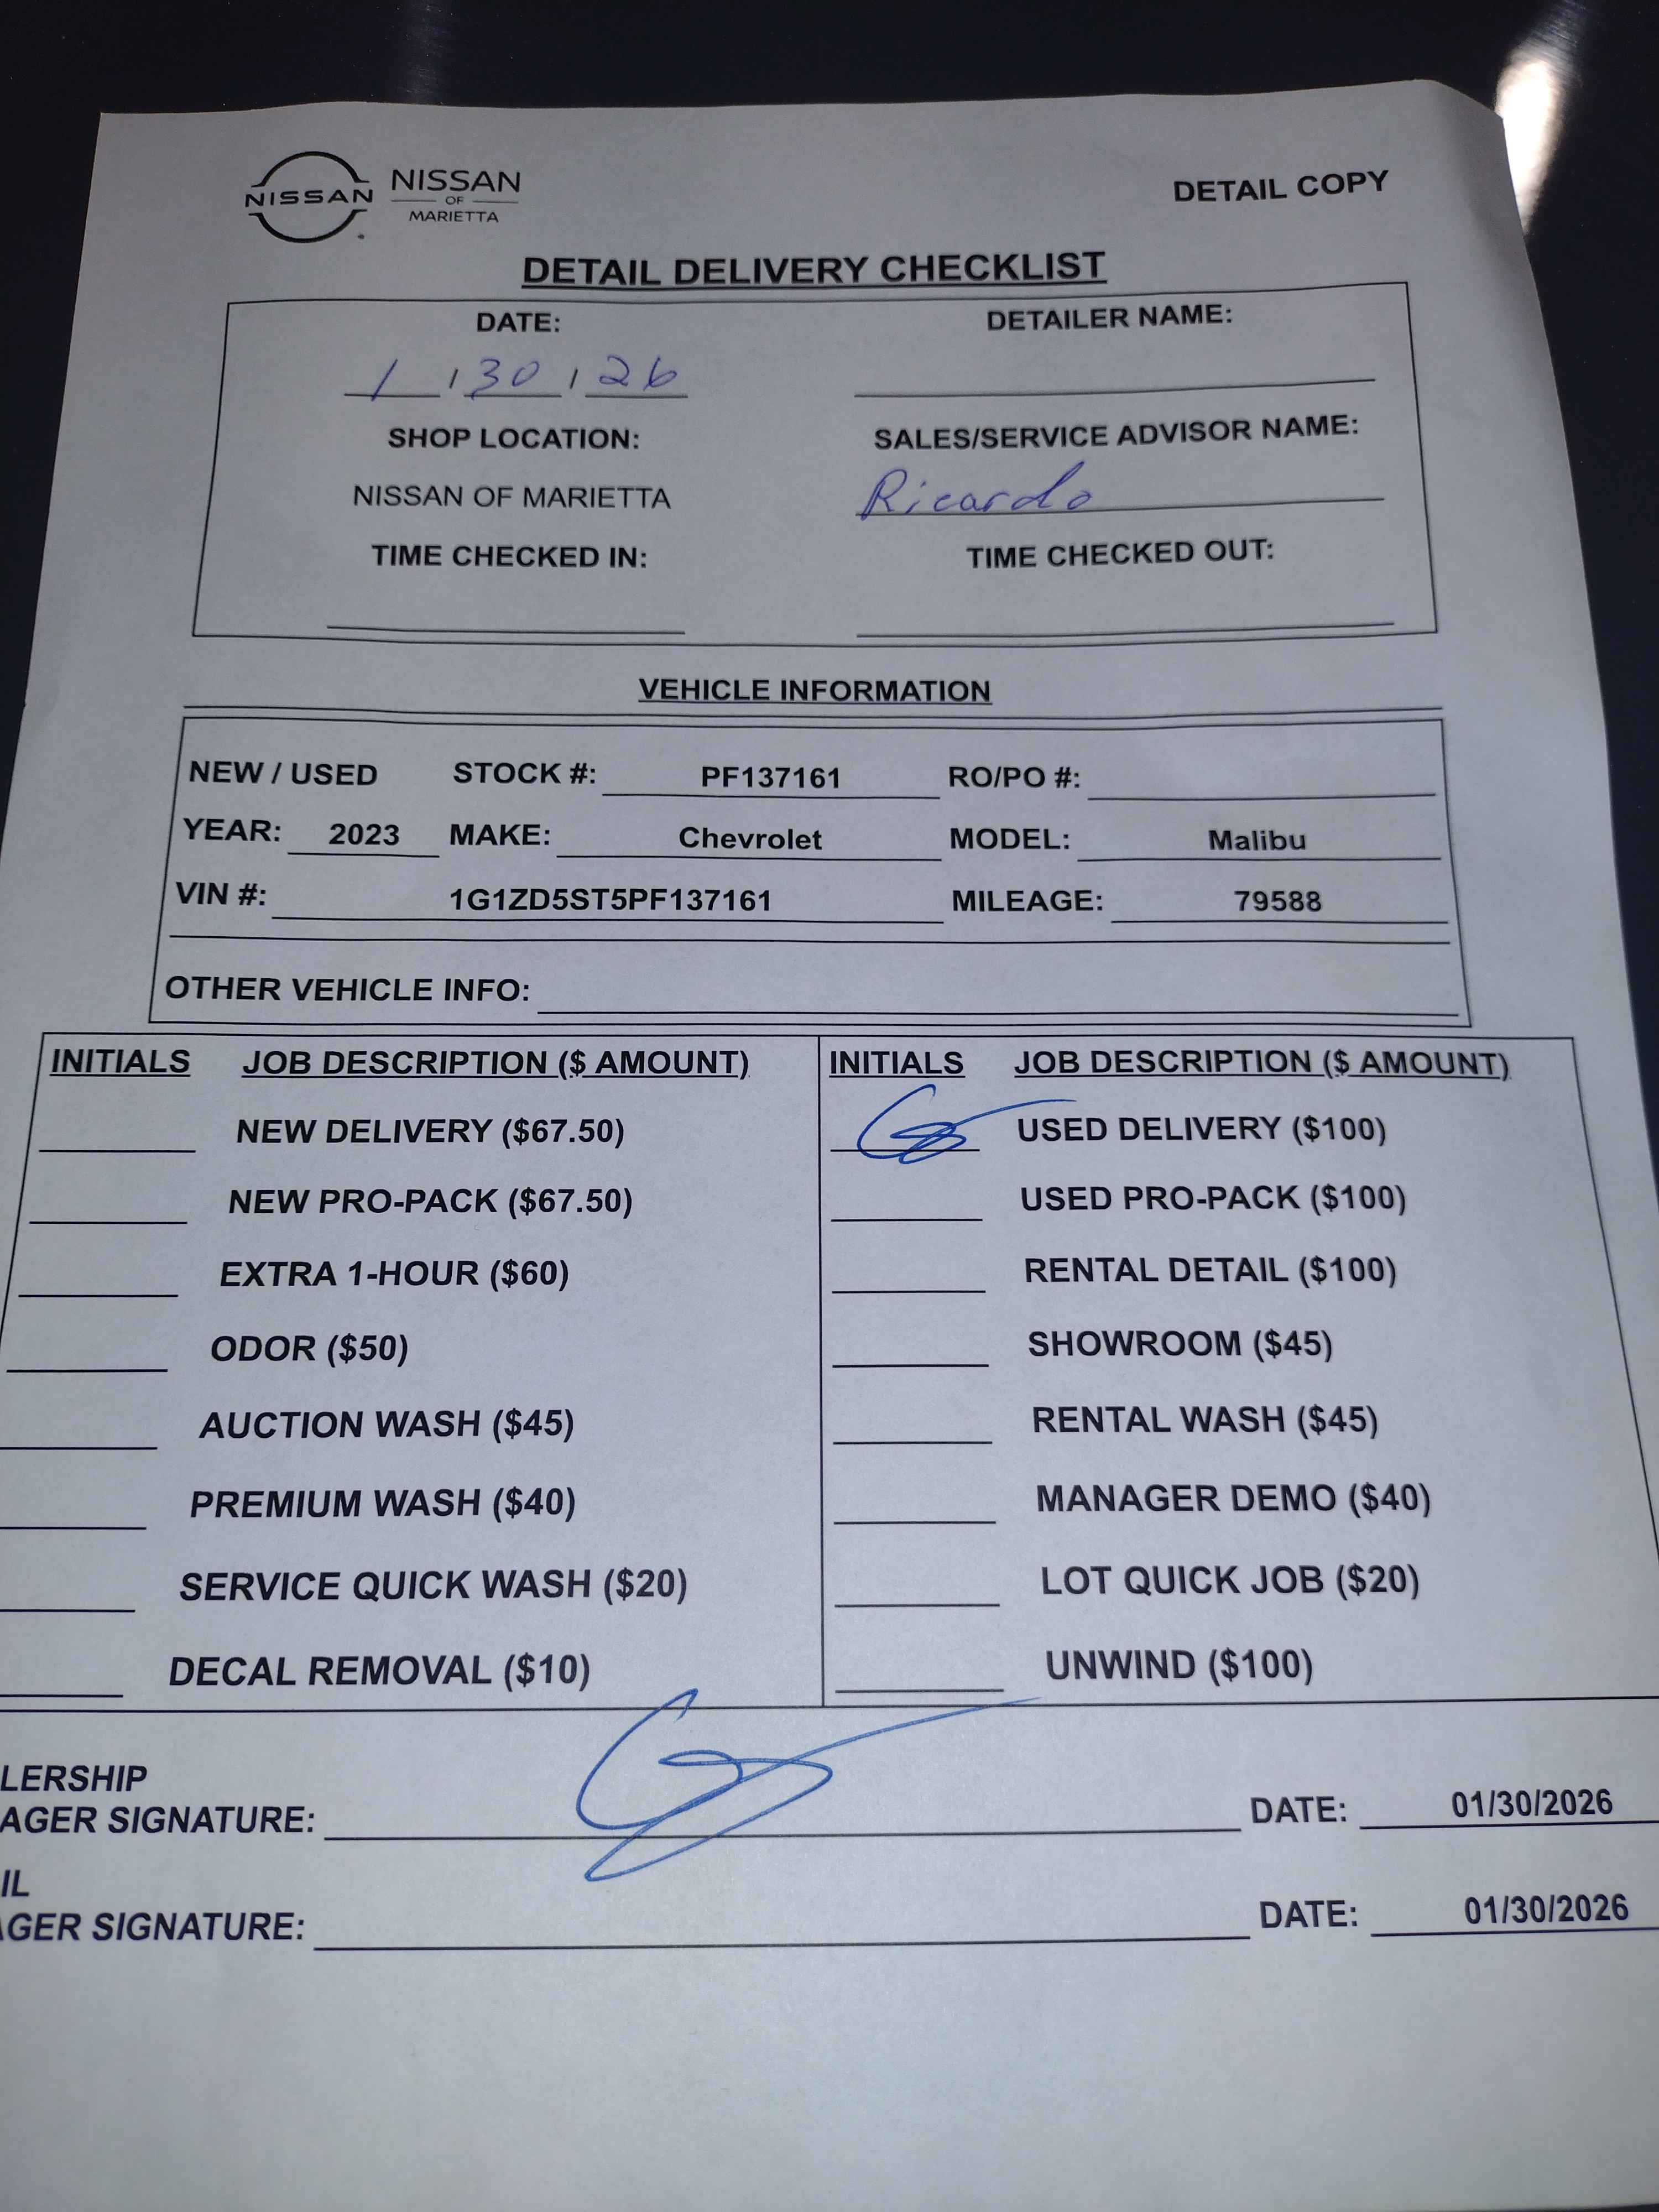 NISSAN NISSAN OF MARIETTA
DETAIL COPY
DETAIL DELIVERY CHECKLIST
DATE: DETAILER NAME:
1 / 30 / 26
SHOP LOCATION: SALES/SERVICE ADVISOR NAME:
NISSAN OF MARIETTA Ricardo
TIME CHECKED IN: TIME CHECKED OUT:
VEHICLE INFORMATION
NEW / USED STOCK #: PF137161 RO/PO #:
YEAR: 2023 MAKE: Chevrolet MODEL: Malibu
VIN #: 1G1ZD5ST5PF137161 MILEAGE: 79588
OTHER VEHICLE INFO:
INITIALS JOB DESCRIPTION ($ AMOUNT) INITIALS JOB DESCRIPTION ($ AMOUNT)
NEW DELIVERY ($67.50) USED DELIVERY ($100)
NEW PRO-PACK ($67.50) USED PRO-PACK ($100)
EXTRA 1-HOUR ($60) RENTAL DETAIL ($100)
ODOR ($50) SHOWROOM ($45)
AUCTION WASH ($45) RENTAL WASH ($45)
PREMIUM WASH ($40) MANAGER DEMO ($40)
SERVICE QUICK WASH ($20) LOT QUICK JOB ($20)
DECAL REMOVAL ($10) UNWIND ($100)
LERSHIP
AGER SIGNATURE: DATE: 01/30/2026
IL
GER SIGNATURE: DATE: 01/30/2026